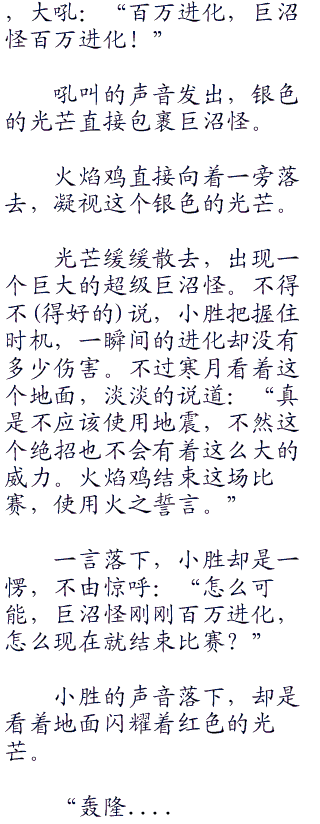 ，大吼：“百万进化，巨沼
怪百万进化！”
吼叫的声音发出，银色
的光芒直接包裹巨沼怪。
火焰鸡直接向着一旁落
去，凝视这个银色的光芒。
光芒缓缓散去，出现一
个巨大的超级巨沼怪。不得
不(得好的)说，小胜把握住
时机，一瞬间的进化却没有
多少伤害。不过寒月看着这
个地面，淡淡的说道：“真
是不应该使用地震，不然这
个绝招也不会有着这么大的
威力。火焰鸡结束这场比
赛，使用火之誓言。”
一言落下，小胜却是一
愣，不由惊呼：“怎么可
能，巨沼怪刚刚百万进化，
怎么现在就结束比赛？”
小胜的声音落下，却是
看着地面闪耀着红色的光
芒。
“轰隆....